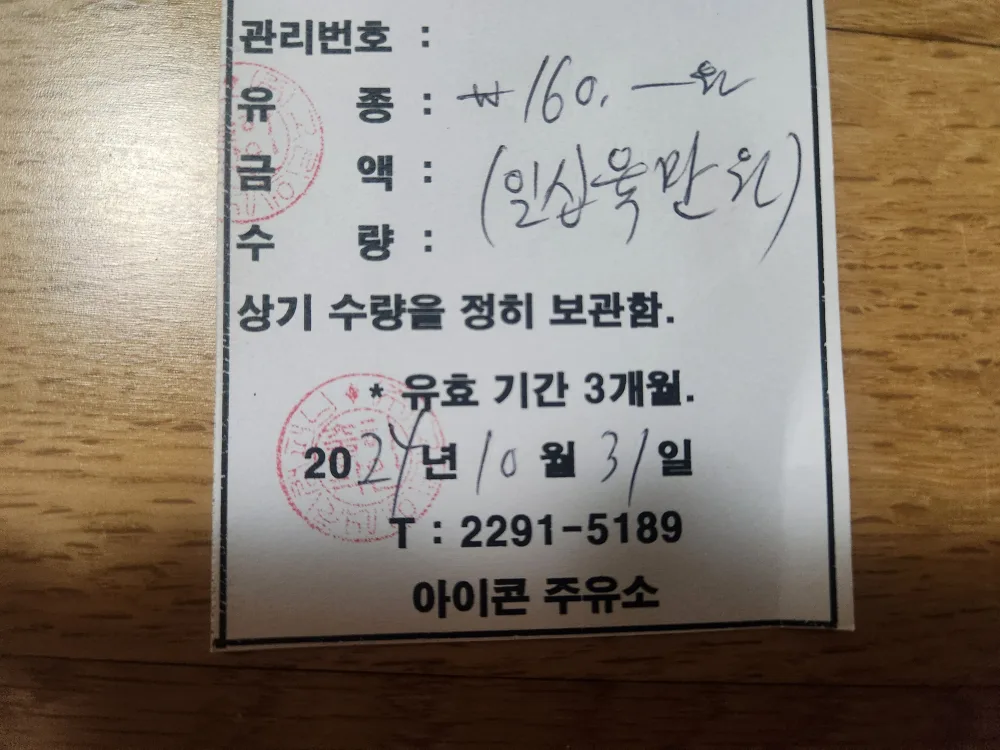 관리번호 :
유 종 : ₩160.—원
금 액 : (일십육만원)
수 량 :
상기 수량을 정히 보관함.
* 유효 기간 3개월.
2024년 10월 31일
T : 2291-5189
아이콘 주유소